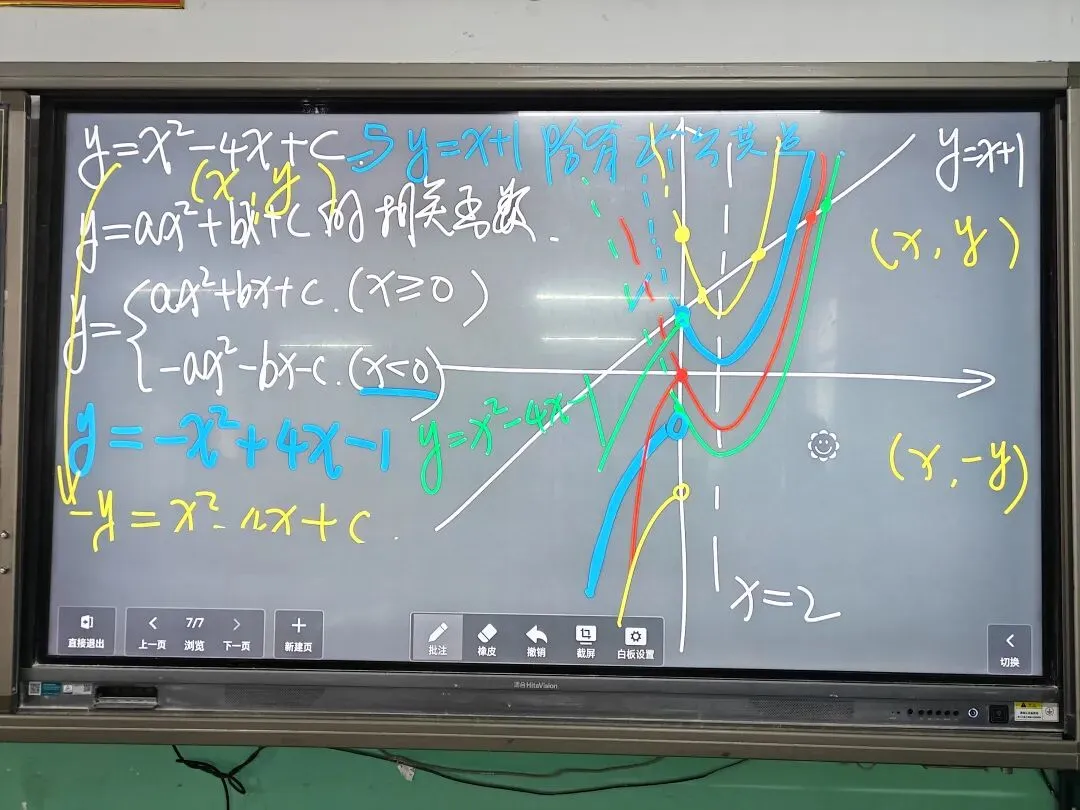 y=x²-4x+c与y=x+1恰有2个公共点
(x,y)
y=ax²+bx+c的相关函数.
y={ax²+bx+c.(x≥0)
-ax²-bx-c.(x<0)
y=-x²+4x-1
y=x²-4x
-y=x²-4x+c.
y=x+1
(x,y)
(x,-y)
x=2
直接退出
上一页
7/7
浏览
下一页
新建页
批注
橡皮
撤销
截屏
白板设置
切换
HiteVision